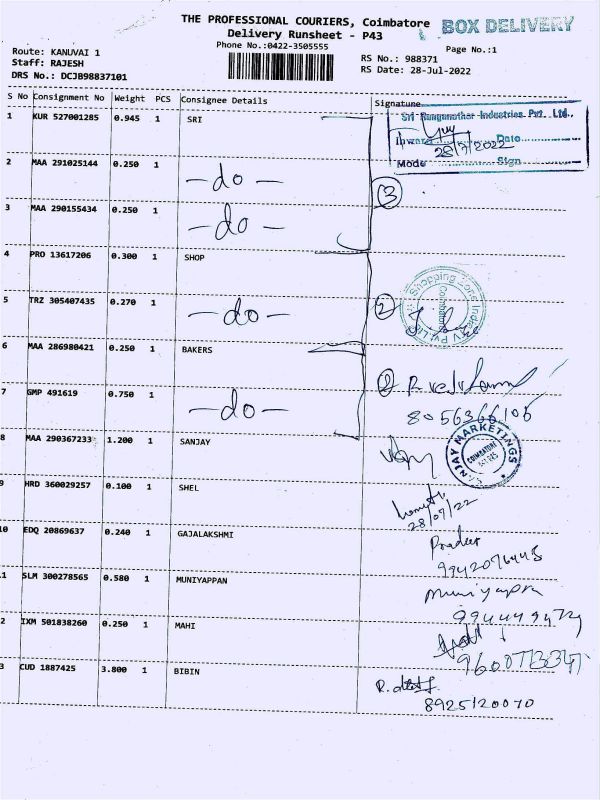 THE PROFESSIONAL COURIERS, Coimbatore
BOX DELIVERY
Delivery Runsheet - P43
Phone No.:0422-3505555
Page No.:1
Route: KANUVAI 1
Staff: RAJESH
DRS No.: DCJB98837101
RS No.: 988371
RS Date: 28-Jul-2022
S No Consignment No Weight PCS Consignee Details Signature
Sri Ranganathar Industries Pvt. Ltd.,
Inward Date
28/7/2022
Mode Sign
1 KUR 527001285 0.945 1 SRI
2 MAA 291025144 0.250 1 -do-
3
3 MAA 290155434 0.250 1 -do-
4 PRO 13617206 0.300 1 SHOP
Shopping Zone India TV Pvt Ltd
Coimbatore
5 TRZ 305407435 0.270 1 -do-
2
6 MAA 286980421 0.250 1 BAKERS
7 GMP 491619 0.750 1 -do-
8056366106
8 MAA 290367233 1.200 1 SANJAY
SANJAY MARKETINGS
COIMBATORE
9 HRD 360029257 0.100 1 SHEL
28/07/22
10 EDQ 20869637 0.240 1 GAJALAKSHMI
Pradeep
1 SLM 300278565 0.580 1 MUNIYAPPAN
muniyappan
2 IXM 501838260 0.250 1 MAHI
3 CUD 1887425 3.800 1 BIBIN
8925120070